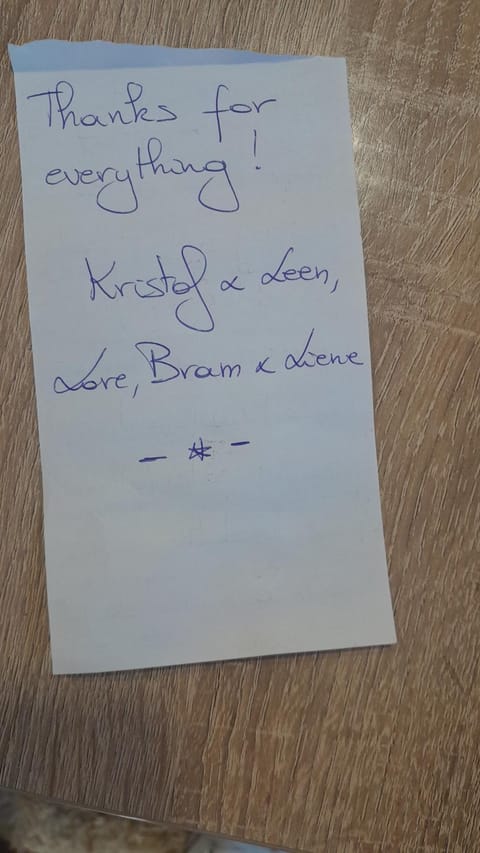 Thanks for
everything!
Kristof & Leen,
Lore, Bram & Liene
- * -